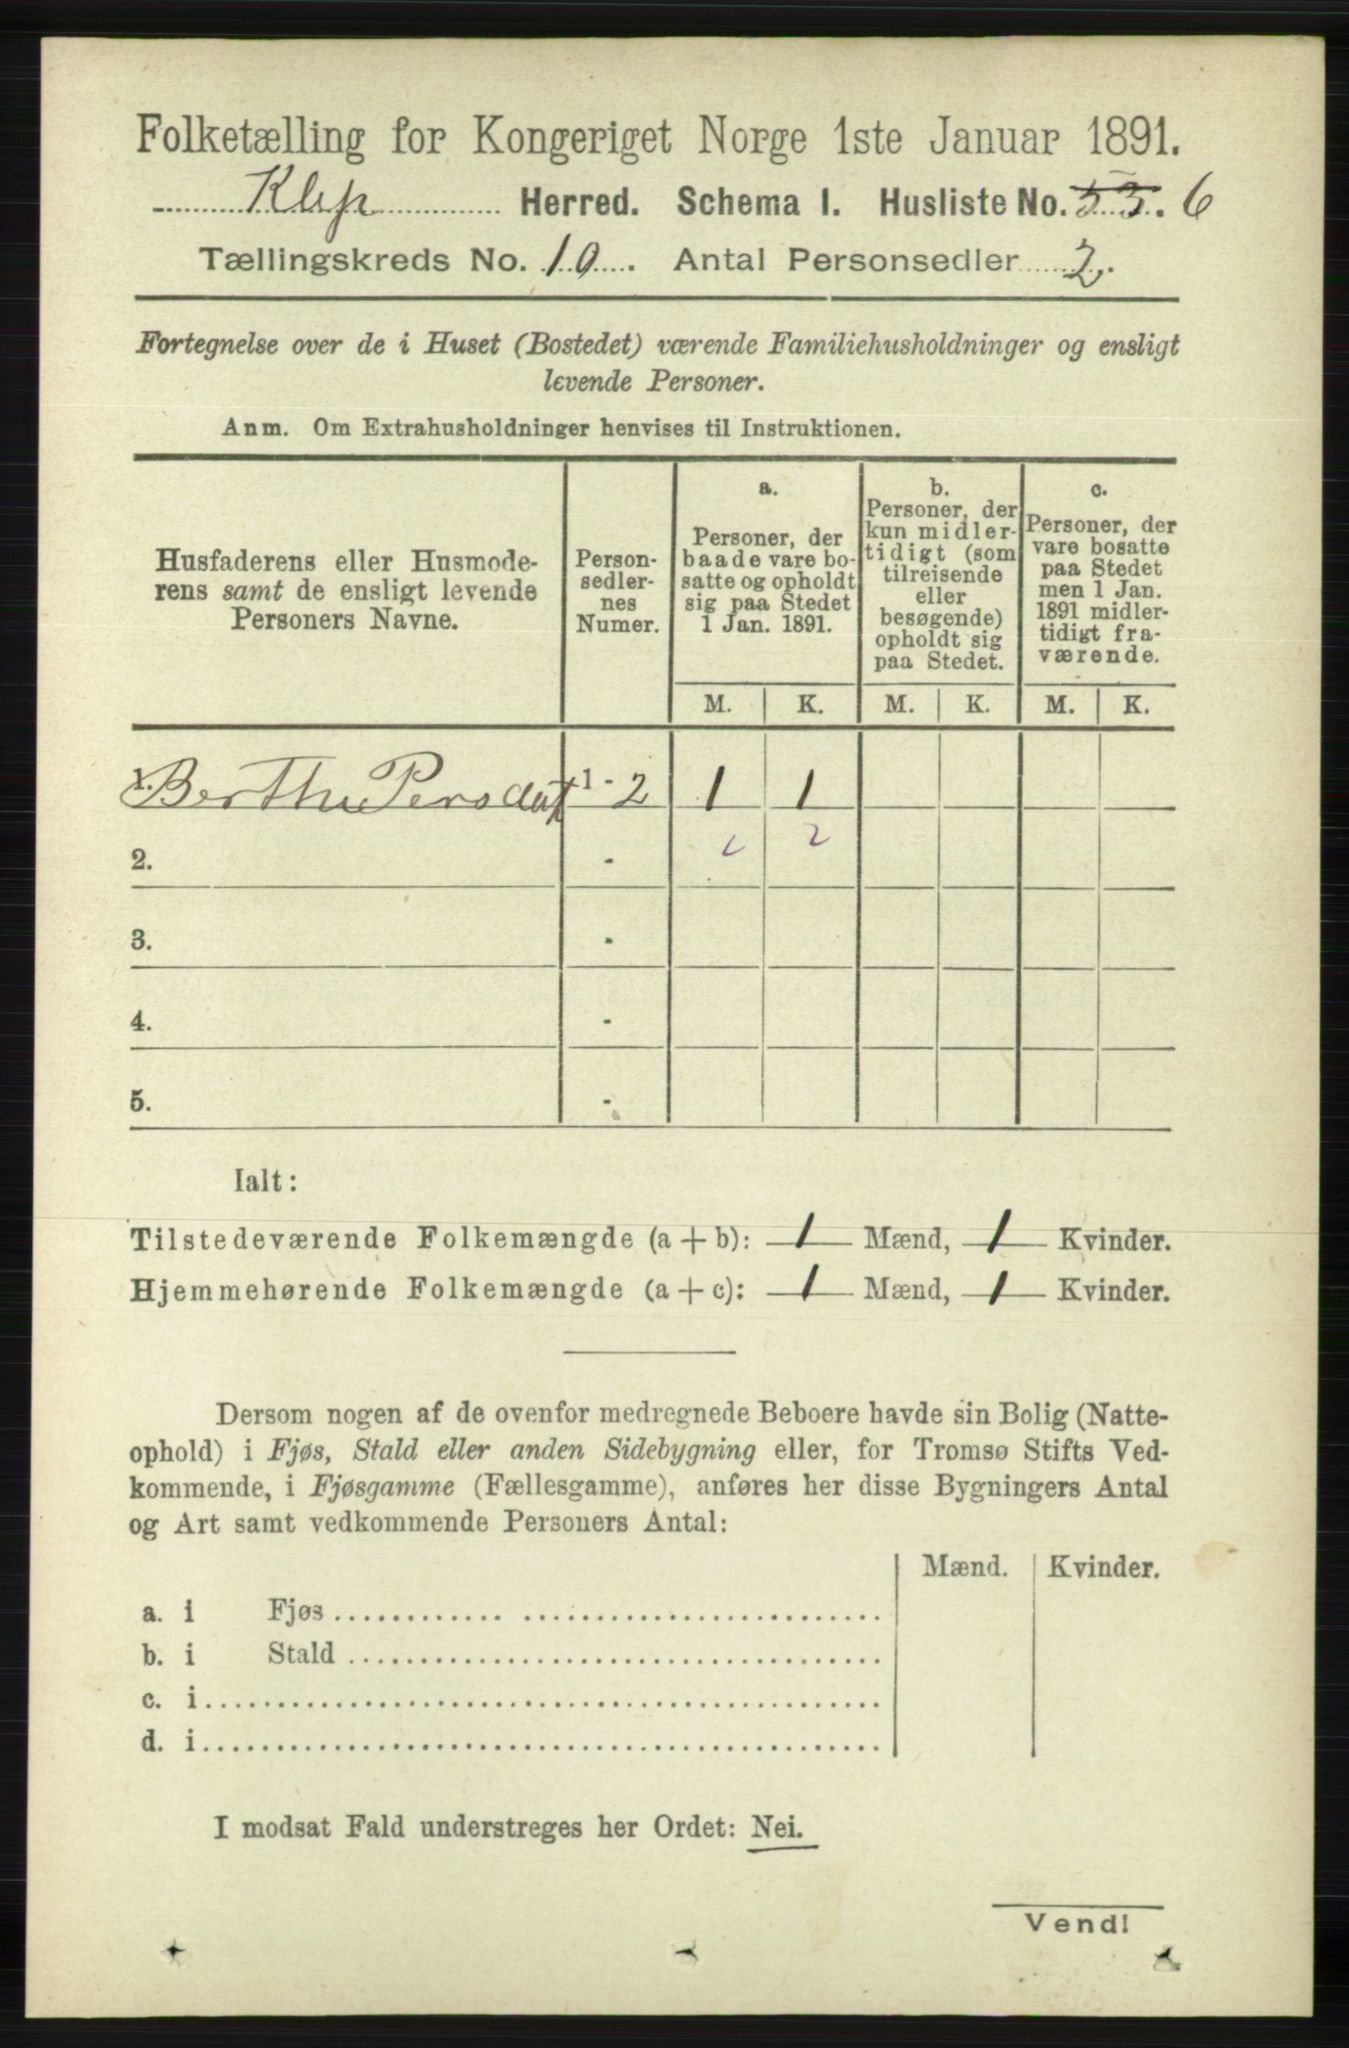 Folketælling for Kongeriget Norge 1ste Januar 1891.
Klep Herred. Schema 1. Husliste No. 53. 6
Tællingskreds No. 10. Antal Personsedler 2.
Fortegnelse over de i Huset (Bostedet) værende Familiehusholdninger og ensligt
levende Personer.
Anm. Om Extrahusholdninger henvises til Instruktionen.
Husfaderens eller Husmode-
rens samt de ensligt levende
Personers Navne.
Person-
sedler-
nes
Numer.
a.
Personer, der
baade vare bo-
satte og opholdt
sig paa Stedet
1 Jan. 1891.
b.
Personer, der
kun midler-
tidigt (som
tilreisende
eller
besøgende)
opholdt sig
paa Stedet.
c.
Personer, der
vare bosatte
paa Stedet
men 1 Jan.
1891 midler-
tidigt fra-
værende.
M. K. M. K. M. K.
1. Bertha Persdat 1 - 2 1 1
2. - 2
3. -
4. -
5. -
Ialt:
Tilstedeværende Folkemængde (a + b): 1 Mænd, 1 Kvinder.
Hjemmehørende Folkemængde (a + c): 1 Mænd, 1 Kvinder.
Dersom nogen af de ovenfor medregnede Beboere havde sin Bolig (Natte-
ophold) i Fjøs, Stald eller anden Sidebygning eller, for Tromsø Stifts Ved-
kommende, i Fjøsgamme (Fællesgamme), anføres her disse Bygningers Antal
og Art samt vedkommende Personers Antal:
Mænd. Kvinder.
a. i Fjøs
b. i Stald
c. i
d. i
I modsat Fald understreges her Ordet: Nei.
Vend!